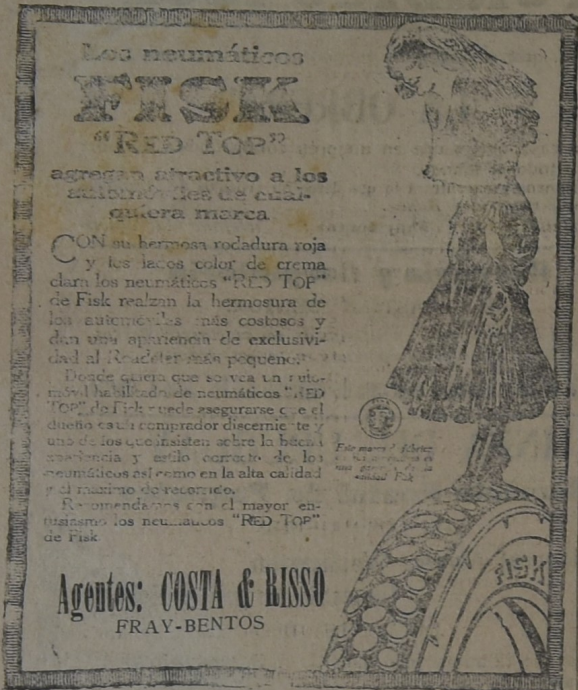 Los neumáticos
FISK
"RED TOP"
agregan atractivo a los
automóviles de cual-
quiera marca
CON su hermosa rodadura roja
y los lados color de crema
clara los neumáticos "RED TOP"
de Fisk realzan la hermosura de
los automóviles más costosos y
dan una apariencia de exclusivi-
dad al Roadster más pequeño.
Donde quiera que se vea un auto-
móvil habilitado de neumáticos "RED
TOP" de Fisk puede asegurarse que el
dueño es un comprador discerniente y
uno de los que insisten sobre la buena
apariencia y estilo correcto de los
neumáticos así como en la alta calidad
y el máximo de recorrido.
Recomendamos con el mayor en-
tusiasmo los neumáticos "RED TOP"
de Fisk
Esta marca de fábrica
de la
calidad Fisk
FISK
Agentes: COSTA & RISSO
FRAY-BENTOS